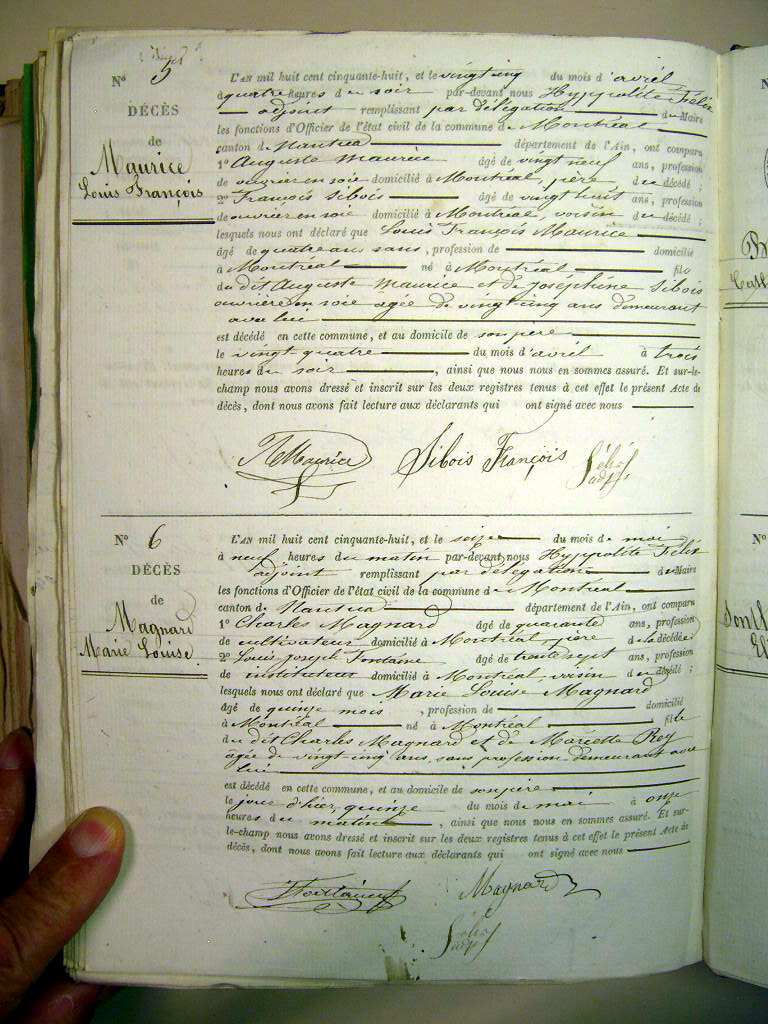 N° 5
DÉCÈS
de
Maurice
Louis François
L'AN mil huit cent cinquante-huit, et le vingt cinq du mois d'avril
à quatre heures du soir par-devant nous Hyppolite Félix
adjoint remplissant par délégation du Maire
les fonctions d'Officier de l'état civil de la commune de Montréal
canton de Nantua département de l'Ain, ont comparu
1° Auguste Maurice âgé de vingt neuf ans, profession
de ouvrier en soie domicilié à Montréal, père du décédé ;
2° François Sibois âgé de vingt huit ans, profession
de ouvrier en soie domicilié à Montréal, voisin du décédé ;
lesquels nous ont déclaré que Louis François Maurice
âgé de quatre ans sans, profession de domicilié
à Montréal né à Montréal fils
du dit Auguste Maurice et de Joséphine Sibois
ouvrière en soie âgée de vingt cinq ans demeurant
avec lui
est décédé en cette commune, et au domicile de son père
le vingt quatre du mois d'avril à trois
heures du soir, ainsi que nous nous en sommes assuré. Et sur-le-
champ nous avons dressé et inscrit sur les deux registres tenus à cet effet le présent Acte de
décès, dont nous avons fait lecture aux déclarants qui ont signé avec nous
Maurice Sibois François Félix
adj.
N° 6
DÉCÈS
de
Magnard
Marie Louise
L'AN mil huit cent cinquante-huit, et le seize du mois de mai
à neuf heures du matin par-devant nous Hyppolite Félix
adjoint remplissant par délégation du Maire
les fonctions d'Officier de l'état civil de la commune de Montréal
canton de Nantua département de l'Ain, ont comparu
1° Charles Magnard âgé de quarante ans, profession
de cultivateur domicilié à Montréal, père de la décédée ;
2° Louis Joseph Fontaine âgé de trente sept ans, profession
de instituteur domicilié à Montréal, voisin du décédé ;
lesquels nous ont déclaré que Marie Louise Magnard
âgé de quinze mois, profession de domicilié
à Montréal né à Montréal fille
du dit Charles Magnard et de Mariette Rey
âgée de vingt cinq ans, sans profession demeurant avec
lui
est décédé en cette commune, et au domicile de son père
le jour d'hier, quinze du mois de mai à onze
heures du matin, ainsi que nous nous en sommes assuré. Et sur-
le-champ nous avons dressé et inscrit sur les deux registres tenus à cet effet le présent Acte de
décès, dont nous avons fait lecture aux déclarants qui ont signé avec nous
Fontaine Magnard
Félix
adj.